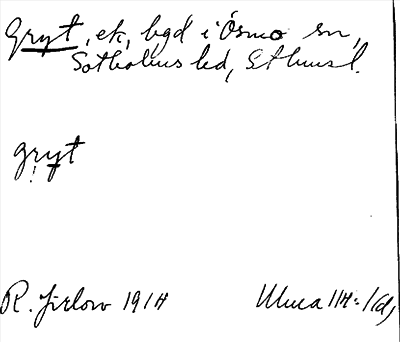 Gryt, ek, bgd i Ösmo sn,
Sotholms hd, Sthms l.
gryt
R. Jirlow 1914